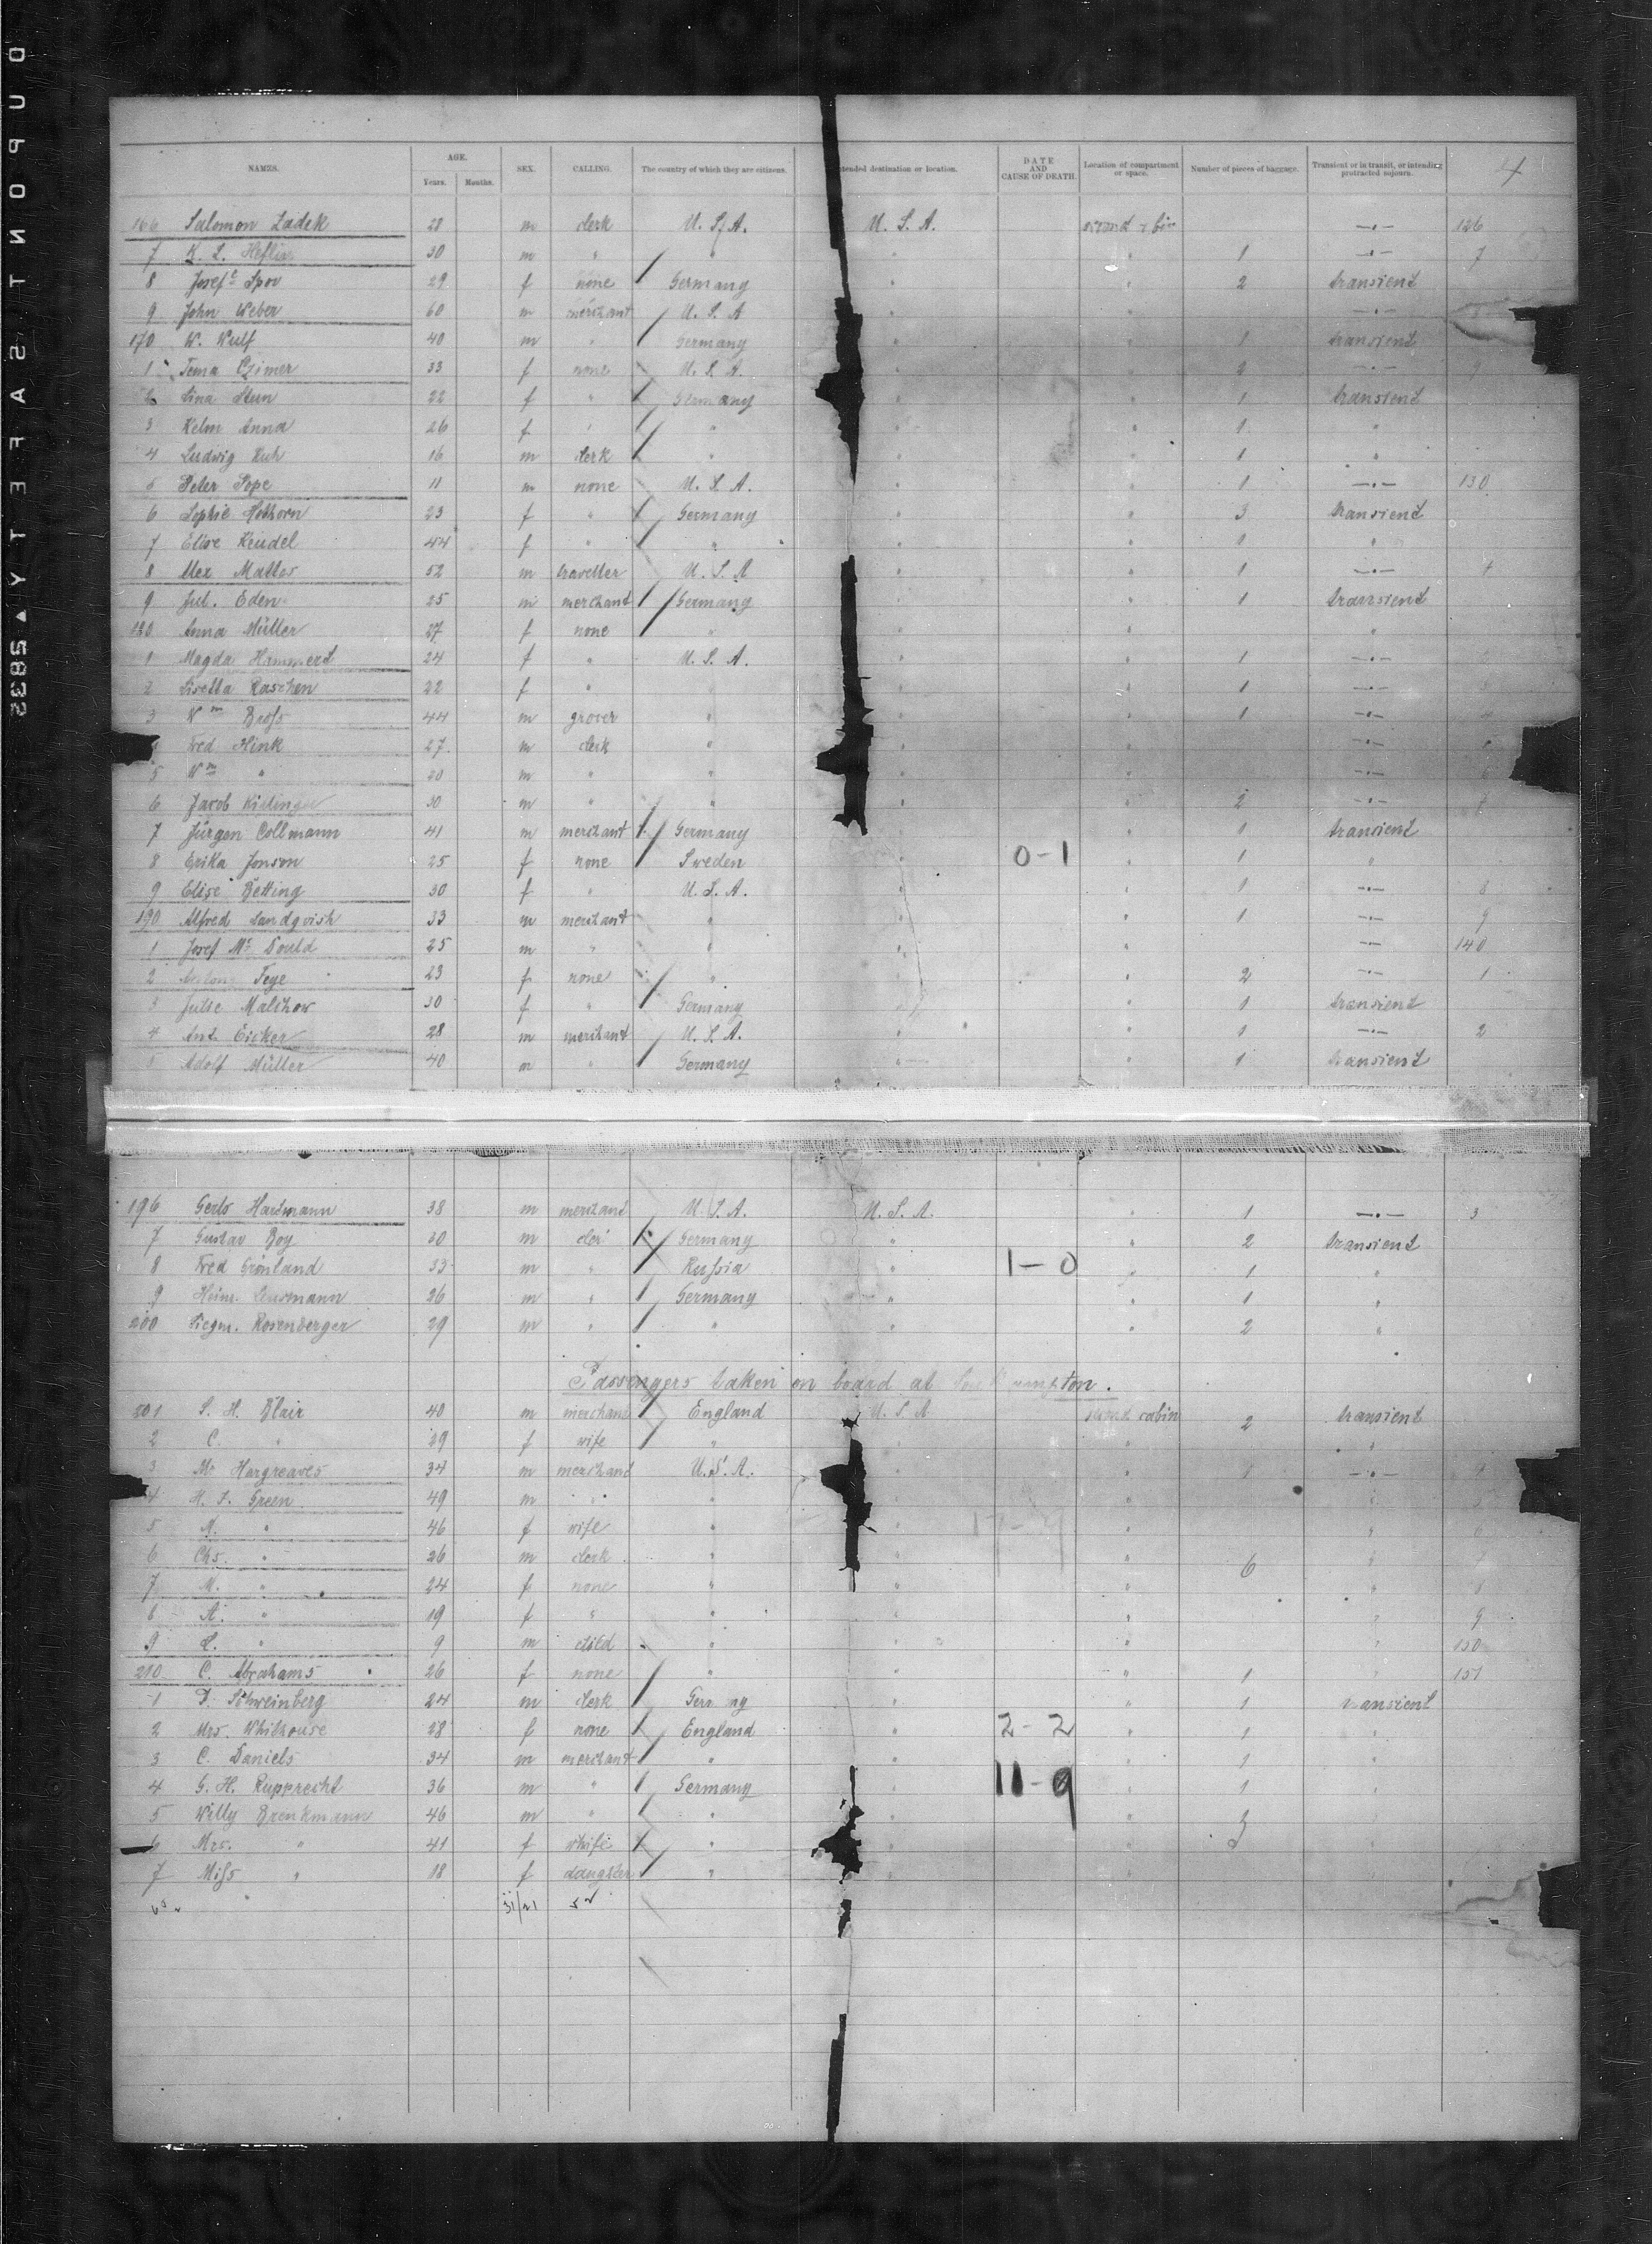 NAMES. AGE. Years. Months. SEX. CALLING. The country of which they are citizens. Intended destination or location. DATE AND CAUSE OF DEATH. Location of compartment or space. Number of pieces of baggage. Transient or in transit, or intending protracted sojourn. 4
166 Salomon Zadek 28 m clerk U.S.A. U.S.A. second cabin —"— 126
7 30 m " " " " 1 —"— 7
8 29 f none Germany " " 2 transient
9 John Weber 60 m merchant U.S.A " " —"—
170 W. Wulf 40 m " Germany " " 1 transient
1 33 f none U.S.A. " " 2 —"— 9
2 Lina Stern 22 f " Germany " 1 transient
3 Kelm Anna 26 f " " " " 1 "
4 Ludwig Kuh 16 m clerk " " " 1 "
5 Peter Pope 11 m none U.S.A. " " 1 —"— 130
6 Sophie Hothorn 23 f " Germany " " 3 transient
7 Elise Keudel 44 f " " " " 1 "
8 Alex Mattos 52 m traveller U.S.A " " 1 —"—
9 Jul. Eden 25 m merchant Germany " " 1 transient
180 Anna Müller 27 f none " " " "
1 Magda Hammert 24 f " U.S.A. " " 1 —"—
2 Lisetta Raschen 22 f " " " 1 —"—
3 Wm Bross 44 m grocer " " " 1 —"— 4
Fred Hink 27 m clerk " " " —"—
5 Wm " 20 m " " " —"— 6
6 Jacob 30 m " " " " 2 —"— 7
7 Jürgen Collmann 41 m merchant Germany " 1 transient
8 Erika Jonson 25 f none Sweden " 0-1 " 1 "
9 Elise Betting 30 f " U.S.A. " " 1 —"— 8
190 Alfred Sandqvish 33 m merchant " " " 1 —"— 9
1 Josef Mc Dould 25 m " " " " —"— 140
2 Feye 23 f none " " " 2 —"— 1
3 Julie Malchow 30 f " Germany " " 1 transient
4 Ant. Eicker 28 m merchant U.S.A. " " 1 —"— 2
5 Adolf Müller 40 m " Germany " " 1 transient
196 Hartmann 38 m merchant U.S.A. U.S.A. " 1 —"— 3
7 Gustav Boy 30 m Germany " " 2 transient
8 Fred Grönland 33 m " Russia " 1-0 " 1 "
9 26 m " Germany " " 1 "
200 Siegm. Rosenberger 29 m " " " " 2 "
Passengers taken on board at Southampton.
201 S. H. Blair 40 m merchant England U.S.A second cabin 2 transient
2 C. " 29 f wife " " " "
3 Mr Hargreaves 34 m merchant U.S.A. " " 1 —"—
4 Green 49 m " " " "
5 M. " 46 f wife " " " " 6
6 Chs. " 26 m clerk " " " 6 "
7 M. " 24 f none " " " " 8
8 A. " 19 f " " " " " 9
9 L. " 9 m child " " " " 150
210 C. Abrahams 26 f none " " " 1 " 151
1 Schweinberg 24 m clerk Germany " " 1 transient
2 Mrs. Whithouse 28 f none England " 2-2 " 1 "
3 C. Daniels 34 m merchant " " " 1 "
4 G. H. Rupprecht 36 m " Germany " 11-9 " 1 "
5 Willy Brenkmann 46 m " " " " 3
6 Mrs. " 41 f whife " "
7 Miss " 18 f daughter " "
31/21 52
DUPONT SAFETY ▲ 2835